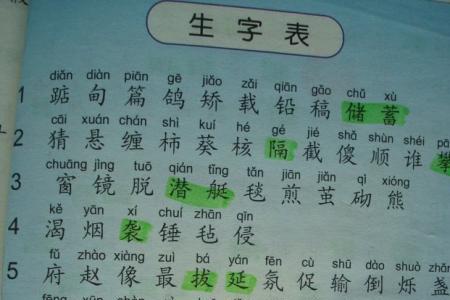 生字表
diǎn diàn piān gē jiǎo zǎi qiān gǎo chǔ xù
1 踮 甸 篇 鸽 矫 载 铅 稿 储 蓄
cāi xuán chán shì kuí hé gé jié shǎ shùn shéi
2 猜 悬 缠 柿 葵 核 隔 截 傻 顺 谁 攀
chuāng jìng tuō qián tǐng tǎn jiān jiǎn qì xióng
3 窗 镜 脱 潜 艇 毯 煎 茧 砌 熊
kě yān xí chuí zhān qīn
4 渴 烟 袭 锤 毡 侵
fǔ zhào xiàng zuì bá yán fēn cù shū dào shuò zhǎn
5 府 赵 像 最 拔 延 氛 促 输 倒 烁 盏